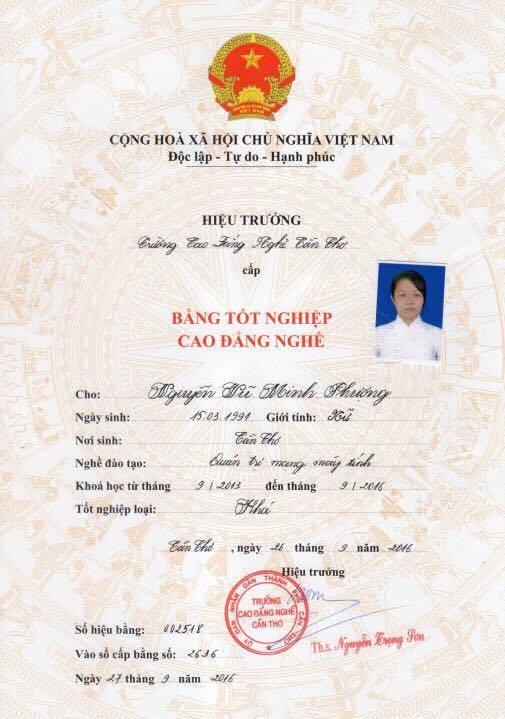 CỘNG HOÀ XÃ HỘI CHỦ NGHĨA VIỆT NAM
Độc lập - Tự do - Hạnh phúc
HIỆU TRƯỞNG
Trường Cao Đẳng Nghề Cần Thơ
cấp
BẰNG TỐT NGHIỆP
CAO ĐẲNG NGHỀ
Cho: Nguyễn Nữ Minh Phương
Ngày sinh: 15.03.1991 Giới tính: Nữ
Nơi sinh: Cần Thơ
Nghề đào tạo: Quản trị mạng máy tính
Khoá học từ tháng 9/2013 đến tháng 9/2016
Tốt nghiệp loại: Khá
Cần Thơ, ngày 26 tháng 9 năm 2016
Hiệu trưởng
ỦY BAN NHÂN DÂN THÀNH PHỐ CẦN THƠ
TRƯỜNG
CAO ĐẲNG NGHỀ
CẦN THƠ
Th.s. Nguyễn Trọng Sơn
Số hiệu bằng: 002518
Vào sổ cấp bằng số: 2636
Ngày 27 tháng 9 năm 2016